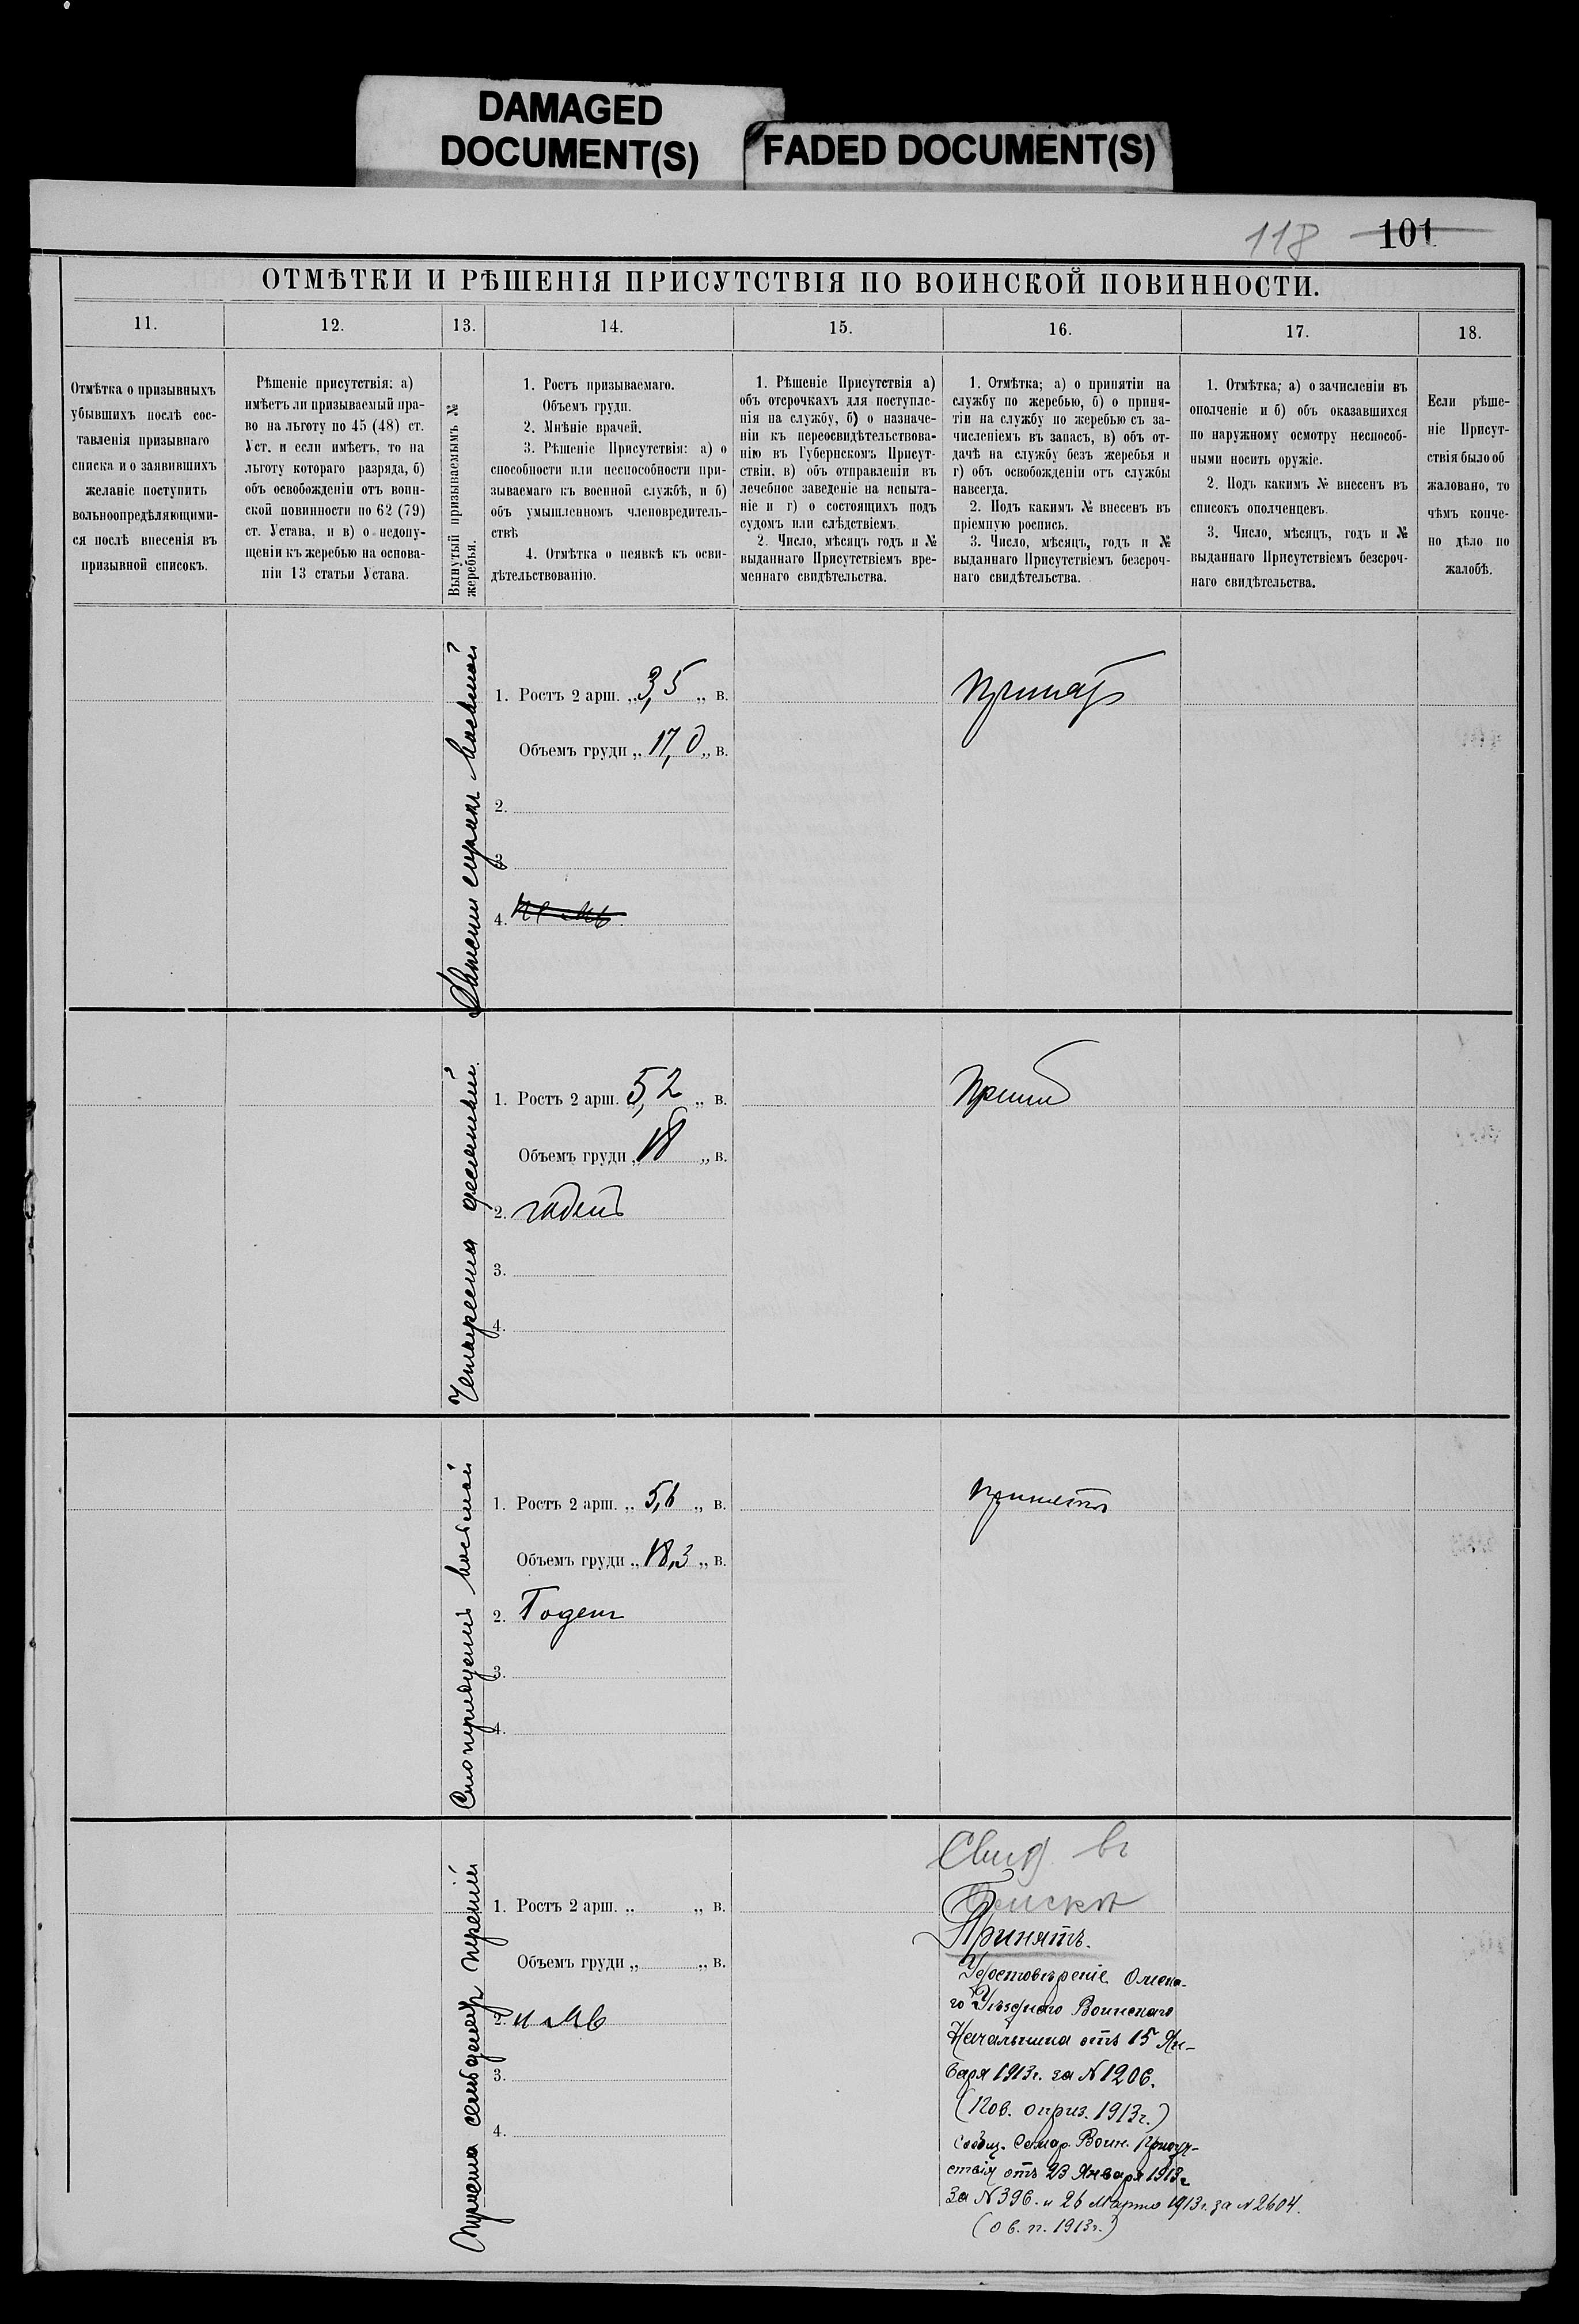 DAMAGED
DOCUMENT(S)
FADED DOCUMENT(S)
118 101
ОТМѢТКИ И РѢШЕНІЯ ПРИСУТСТВІЯ ПО ВОИНСКОЙ ПОВИННОСТИ.
11.
12.
13.
14.
15.
16.
17.
18.
Отмѣтка о призывныхъ
убывшихъ послѣ сос-
тавленія призывнаго
списка и о заявившихъ
желаніе поступить
вольноопредѣляющими-
ся послѣ внесенія въ
призывной списокъ.
Рѣшеніе присутствія: а)
имѣетъ ли призываемый пра-
во на льготу по 45 (48) ст.
Уст. и если имѣетъ, то на
льготу котораго разряда, б)
объ освобожденіи отъ воин-
ской повинности по 62 (79)
ст. Устава, и в) о недопу-
щеніи къ жеребью на основа-
ніи 13 статьи Устава.
Вынутый призываемымъ №
жеребья.
1. Ростъ призываемаго.
Объемъ груди.
2. Мнѣніе врачей.
3. Рѣшеніе Присутствія: а) о
способности или неспособности при-
зываемаго къ военной службѣ, и б)
объ умышленномъ членовредитель-
ствѣ
4. Отмѣтка о неявкѣ къ осви-
дѣтельствованію.
1. Рѣшеніе Присутствія а)
объ отсрочкахъ для поступле-
нія на службу, б) о назначе-
ніи къ переосвидѣтельствова-
нію въ Губернскомъ Присут-
ствіи, в) объ отправленіи въ
лечебное заведеніе на испыта-
ніе и г) о состоящихъ подъ
судомъ или слѣдствіемъ
2. Число, мѣсяцъ годъ и №
выданнаго Присутствіемъ вре-
меннаго свидѣтельства.
1. Отмѣтка; а) о принятіи на
службу по жеребью, б) о приня-
тіи на службу по жеребью съ за-
численіемъ въ запасъ, в) объ от-
дачѣ на службу безъ жеребья и
г) объ освобожденіи отъ службы
навсегда.
2. Подъ какимъ № внесенъ въ
пріемную роспись.
3. Число, мѣсяцъ, годъ и №
выданнаго Присутствіемъ безсроч-
наго свидѣтельства.
1. Отмѣтка; а) о зачисленіи въ
ополченіе и б) объ оказавшихся
по наружному осмотру неспособ-
ными носить оружіе.
2. Подъ какимъ № внесенъ въ
списокъ ополченцевъ.
3. Число, мѣсяцъ, годъ и №
выданнаго Присутствіемъ безсроч-
наго свидѣтельства.
Если рѣше-
ніе Присут-
ствія было об
жаловано, то
чѣмъ конче-
но дѣло по
жалобѣ.
Двѣсти сорокъ восьмой
1. Ростъ 2 арш. „ 3,5 „ в.
Объемъ груди „ 17,0 „ в.
2.
3
4.
Принятъ
Четыреста десятый.
1. Ростъ 2 арш. 5,2 „ в.
Объемъ груди „ 18 „ в.
2. годенъ
3.
4.
Принятъ
Сто тридцать восьмой
1. Ростъ 2 арш. „ 5,6 „ в.
Объемъ груди „ 18,3 „ в.
2. Годенъ
3.
4.
принятъ
Триста семьдесят первый
1. Ростъ 2 арш. „ „ в.
Объемъ груди „ „ в.
2.
3.
4.
Свид. въ
Омскѣ
Принятъ.
Удостовѣреніе Омска-
го Уѣзднаго Воинскаго
Начальника отъ 15 Ян-
варя 1913г. за N 1206.
(Пов. о приз. 1913г.)
Сообщ. Самар. Воин. Присут-
ствія отъ 23 Января 1913г
за N 396. и 26 Марта 1913г. за N 2604.
(о в. п. 1913г.)